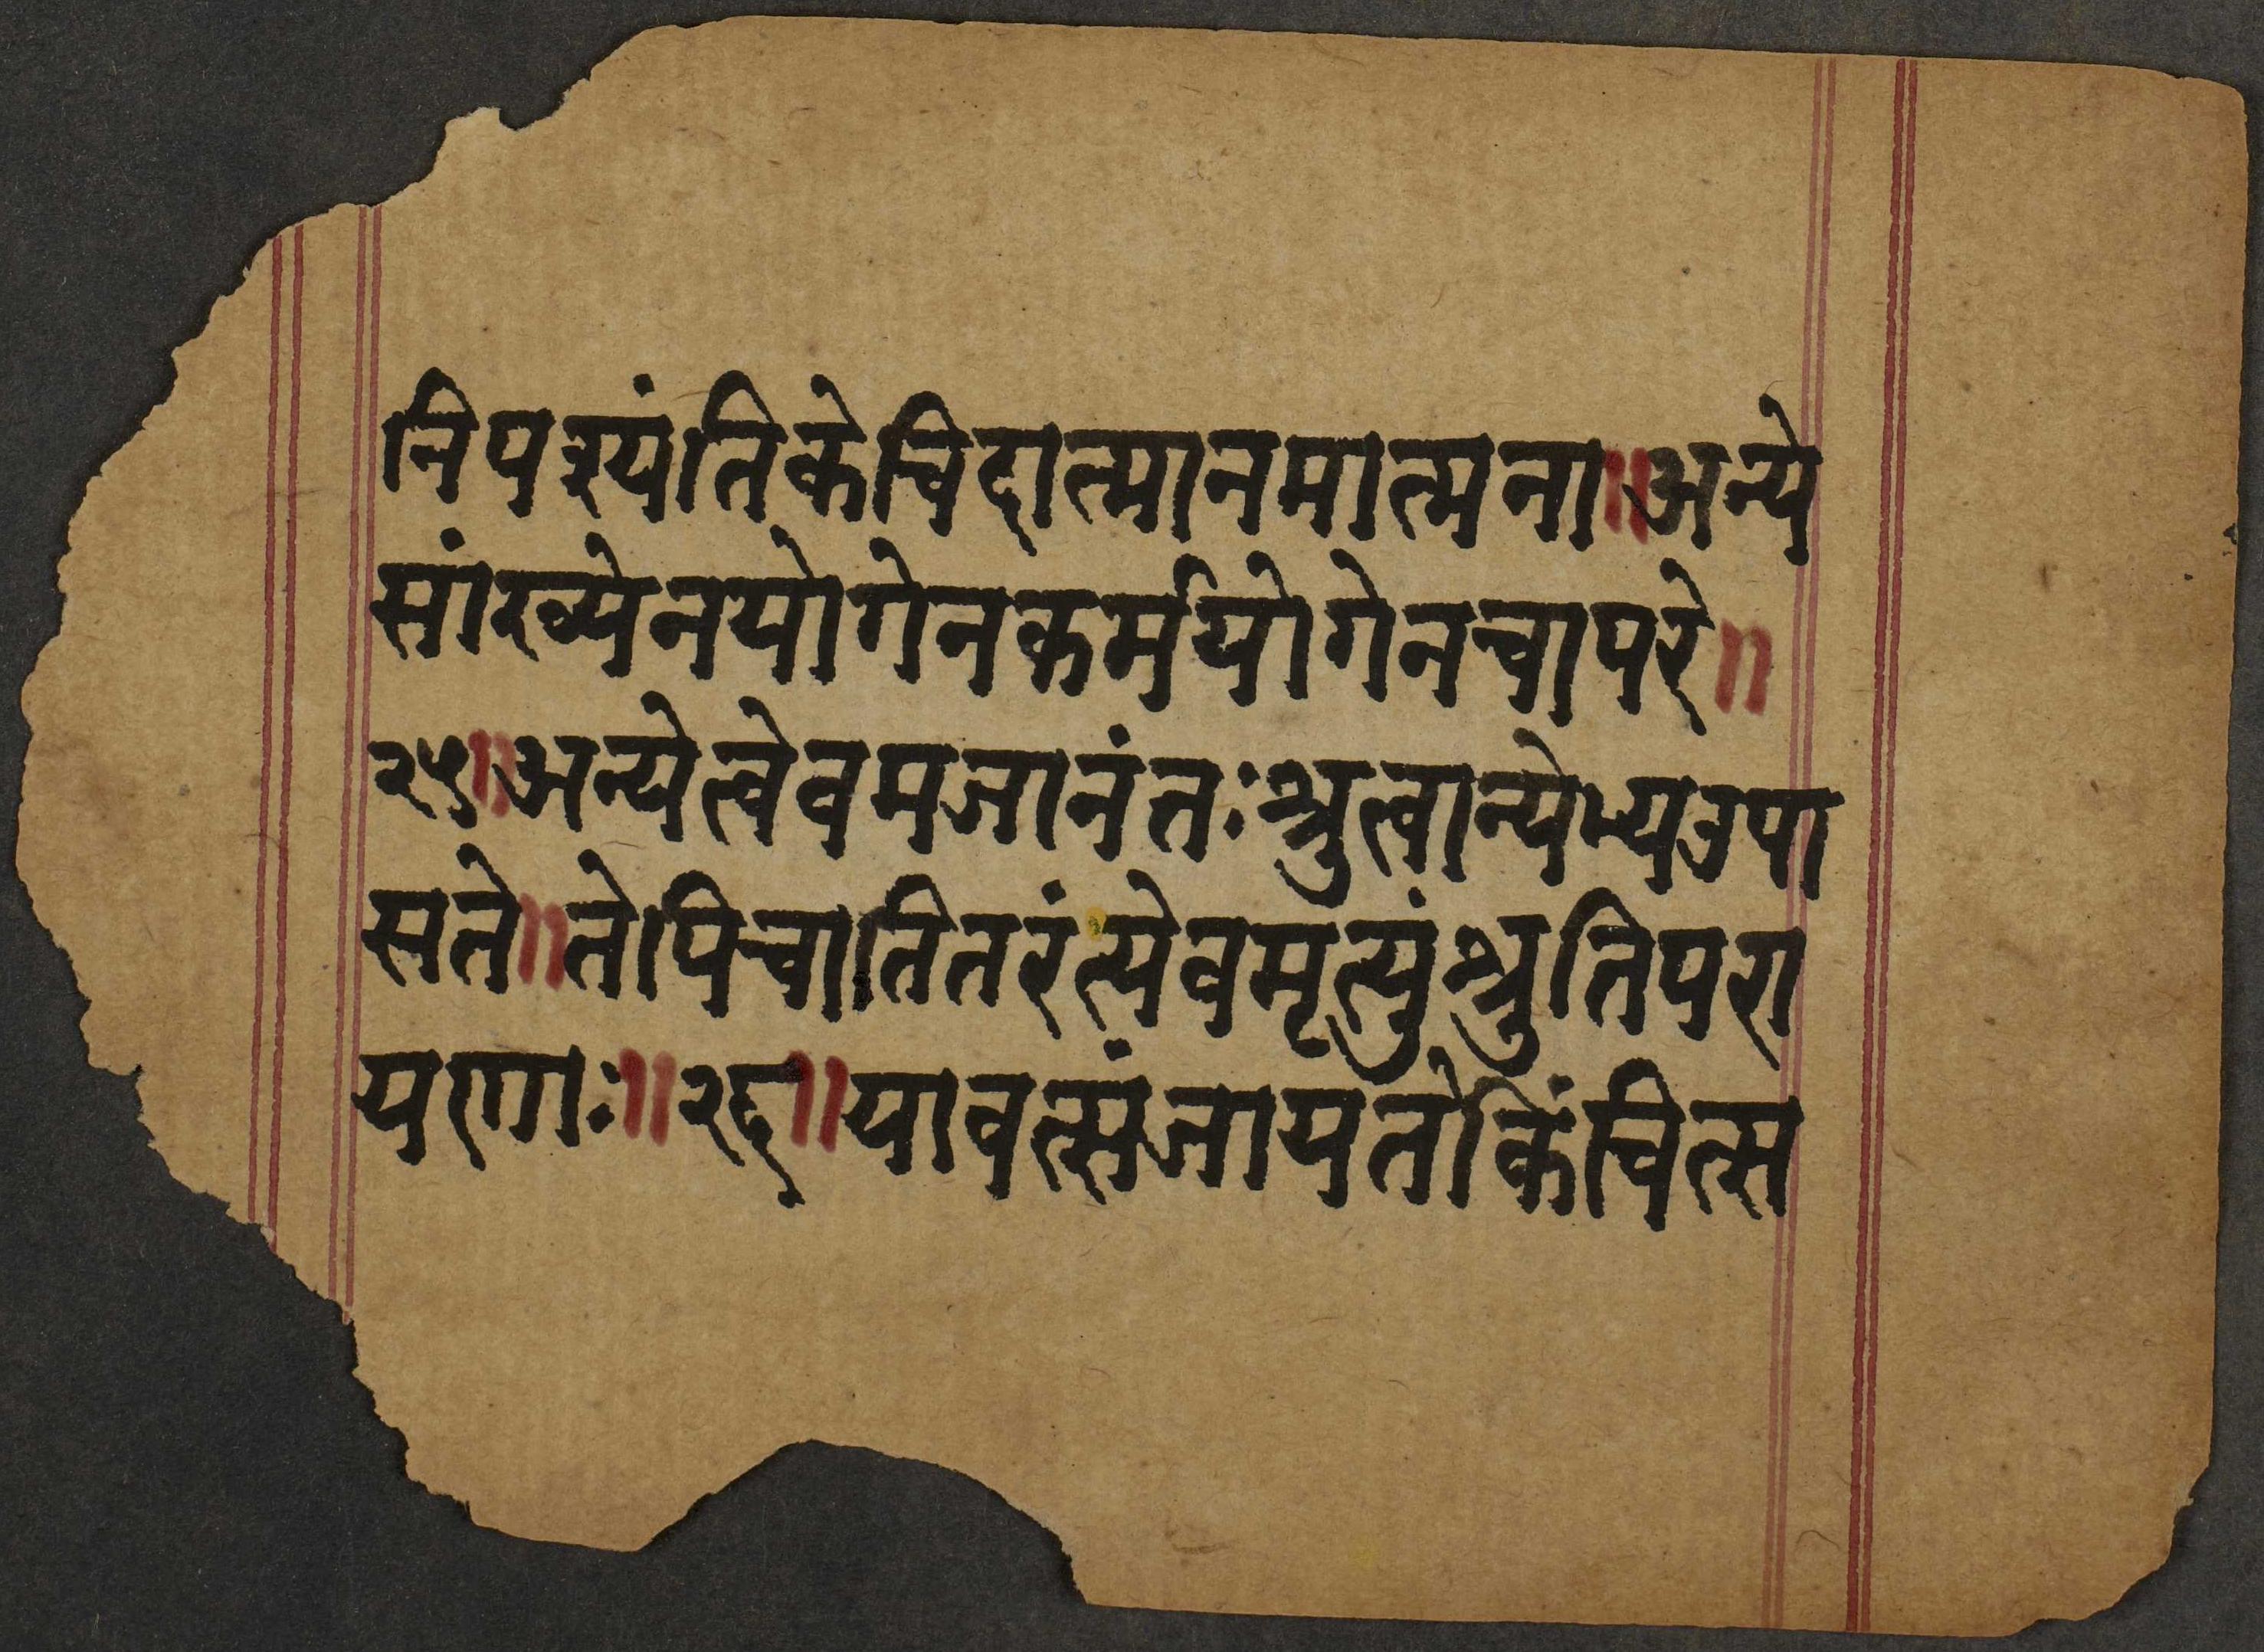 निपश्यंतिकेचिदात्मानमात्मना॥अन्ये
सांख्येनयोगेनकर्मयोगेनचापरे॥
२५॥अन्येत्वेवमजानंतःश्रुत्वान्येभ्यउपा
सते॥तेपिचातितरंत्येवमृत्युंश्रुतिपरा
यणाः॥२६॥यावत्संजायतेकिंचित्स